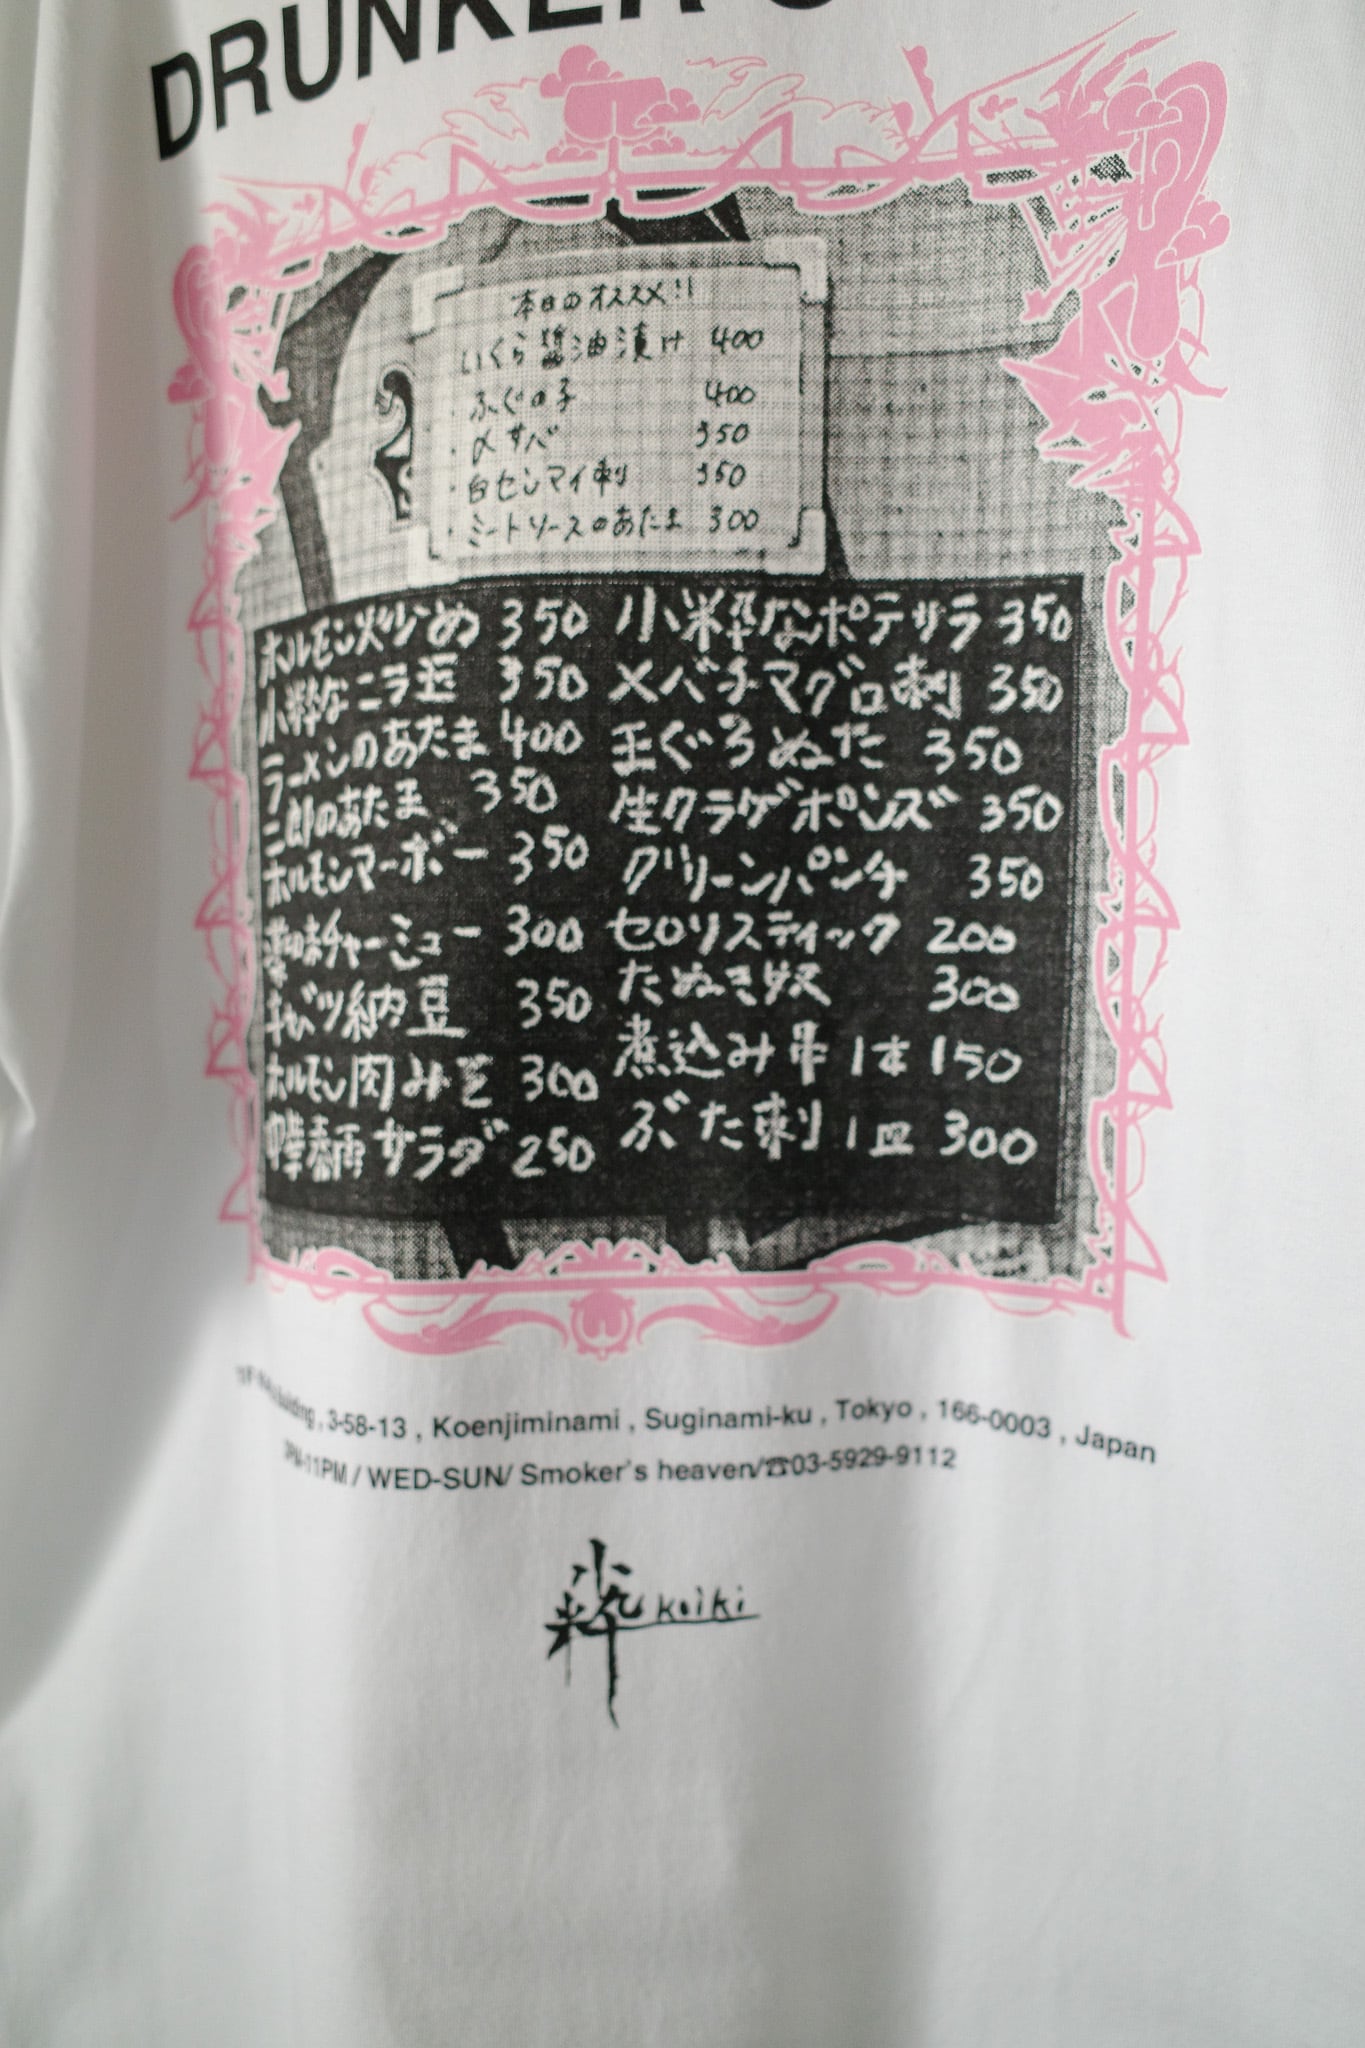 DRUNKER'S
本日のオススメ!!
いくら醤油漬け 400
・ふぐの子 400
・〆サバ 350
・白センマイ刺 350
・ミートソースのあたま 300
ホルモン炒め 350
小粋なニラ玉 350
ラーメンのあたま 400
二郎のあたま 350
ホルモンマーボー 350
薬味チャーミュー 300
キャベツ納豆 350
ホルモン肉みそ 300
中華春雨サラダ 250
小粋なポテサラ 350
メバチマグロ刺 350
まぐろぬた 350
生クラゲポンズ 350
グリーンパンチ 350
セロリスティック 200
たぬき奴 300
煮込み串 1本 150
ぶた刺 1皿 300
Building , 3-58-13 , Koenjiminami , Suginami-ku , Tokyo , 166-0003 , Japan
3PM-11PM / WED-SUN/ Smoker's heaven/☎03-5929-9112
小粋 koiki